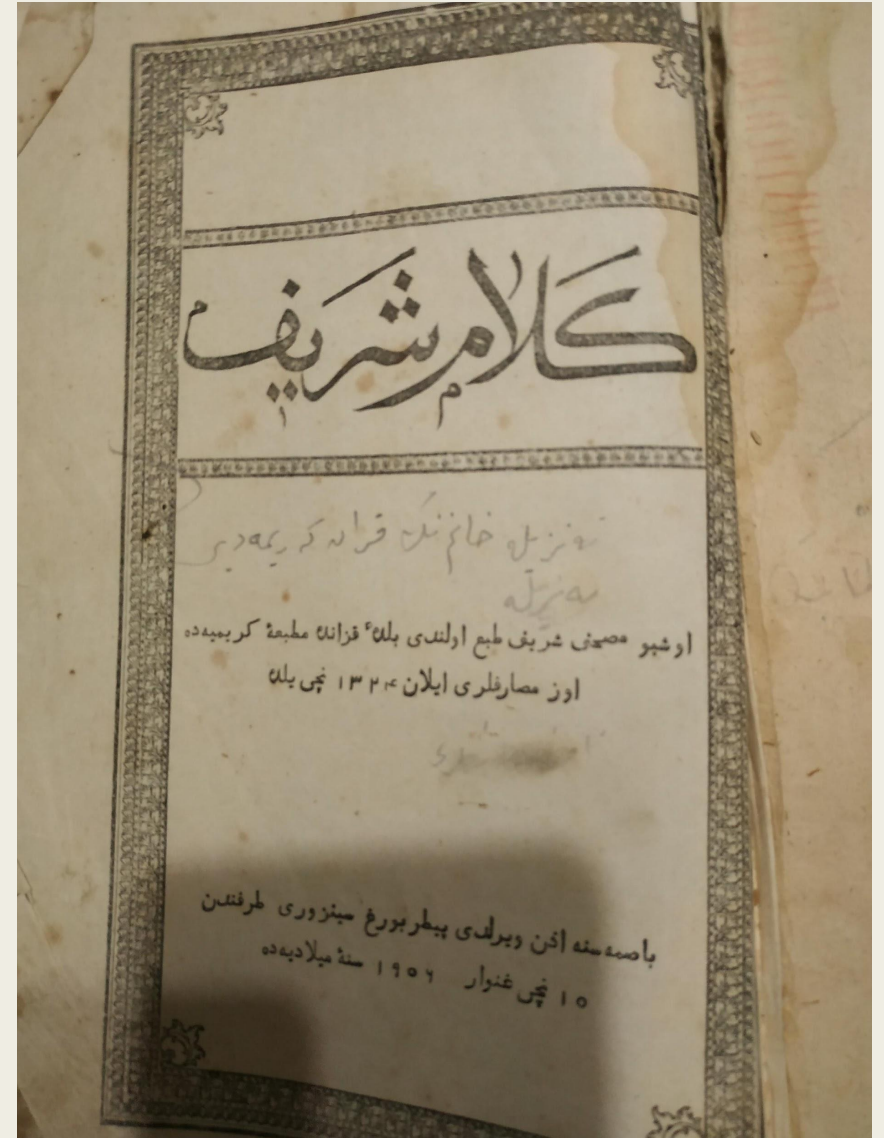 كلام شريف
خانم ننك قران كه ريمه دير
اوشبو مصحف شريف طبع اولندى بلدهٔ قزانده مطبعهٔ كريميه ده
اوز مصارفلرى ايلان ۱۳۲۴ نچى يلده
باصمه سنه اذن ويرلدى پيطربورغ سينزورى طرفندن
۱۵ نچى غنوار ۱۹۰۶ سنهٔ ميلاديه ده